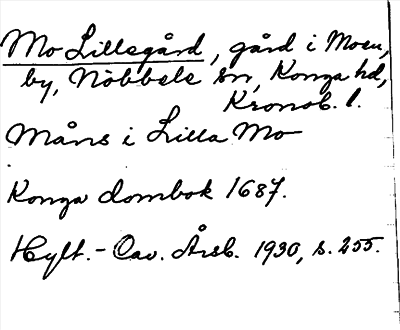 Mo Lillegård, gård i Moen,
by, Nöbbele sn, Konga hd,
Kronob. l.
Måns i Lilla Mo
Konga dombok 1687.
Hylt.-Cav. Årsb. 1930, s. 255.